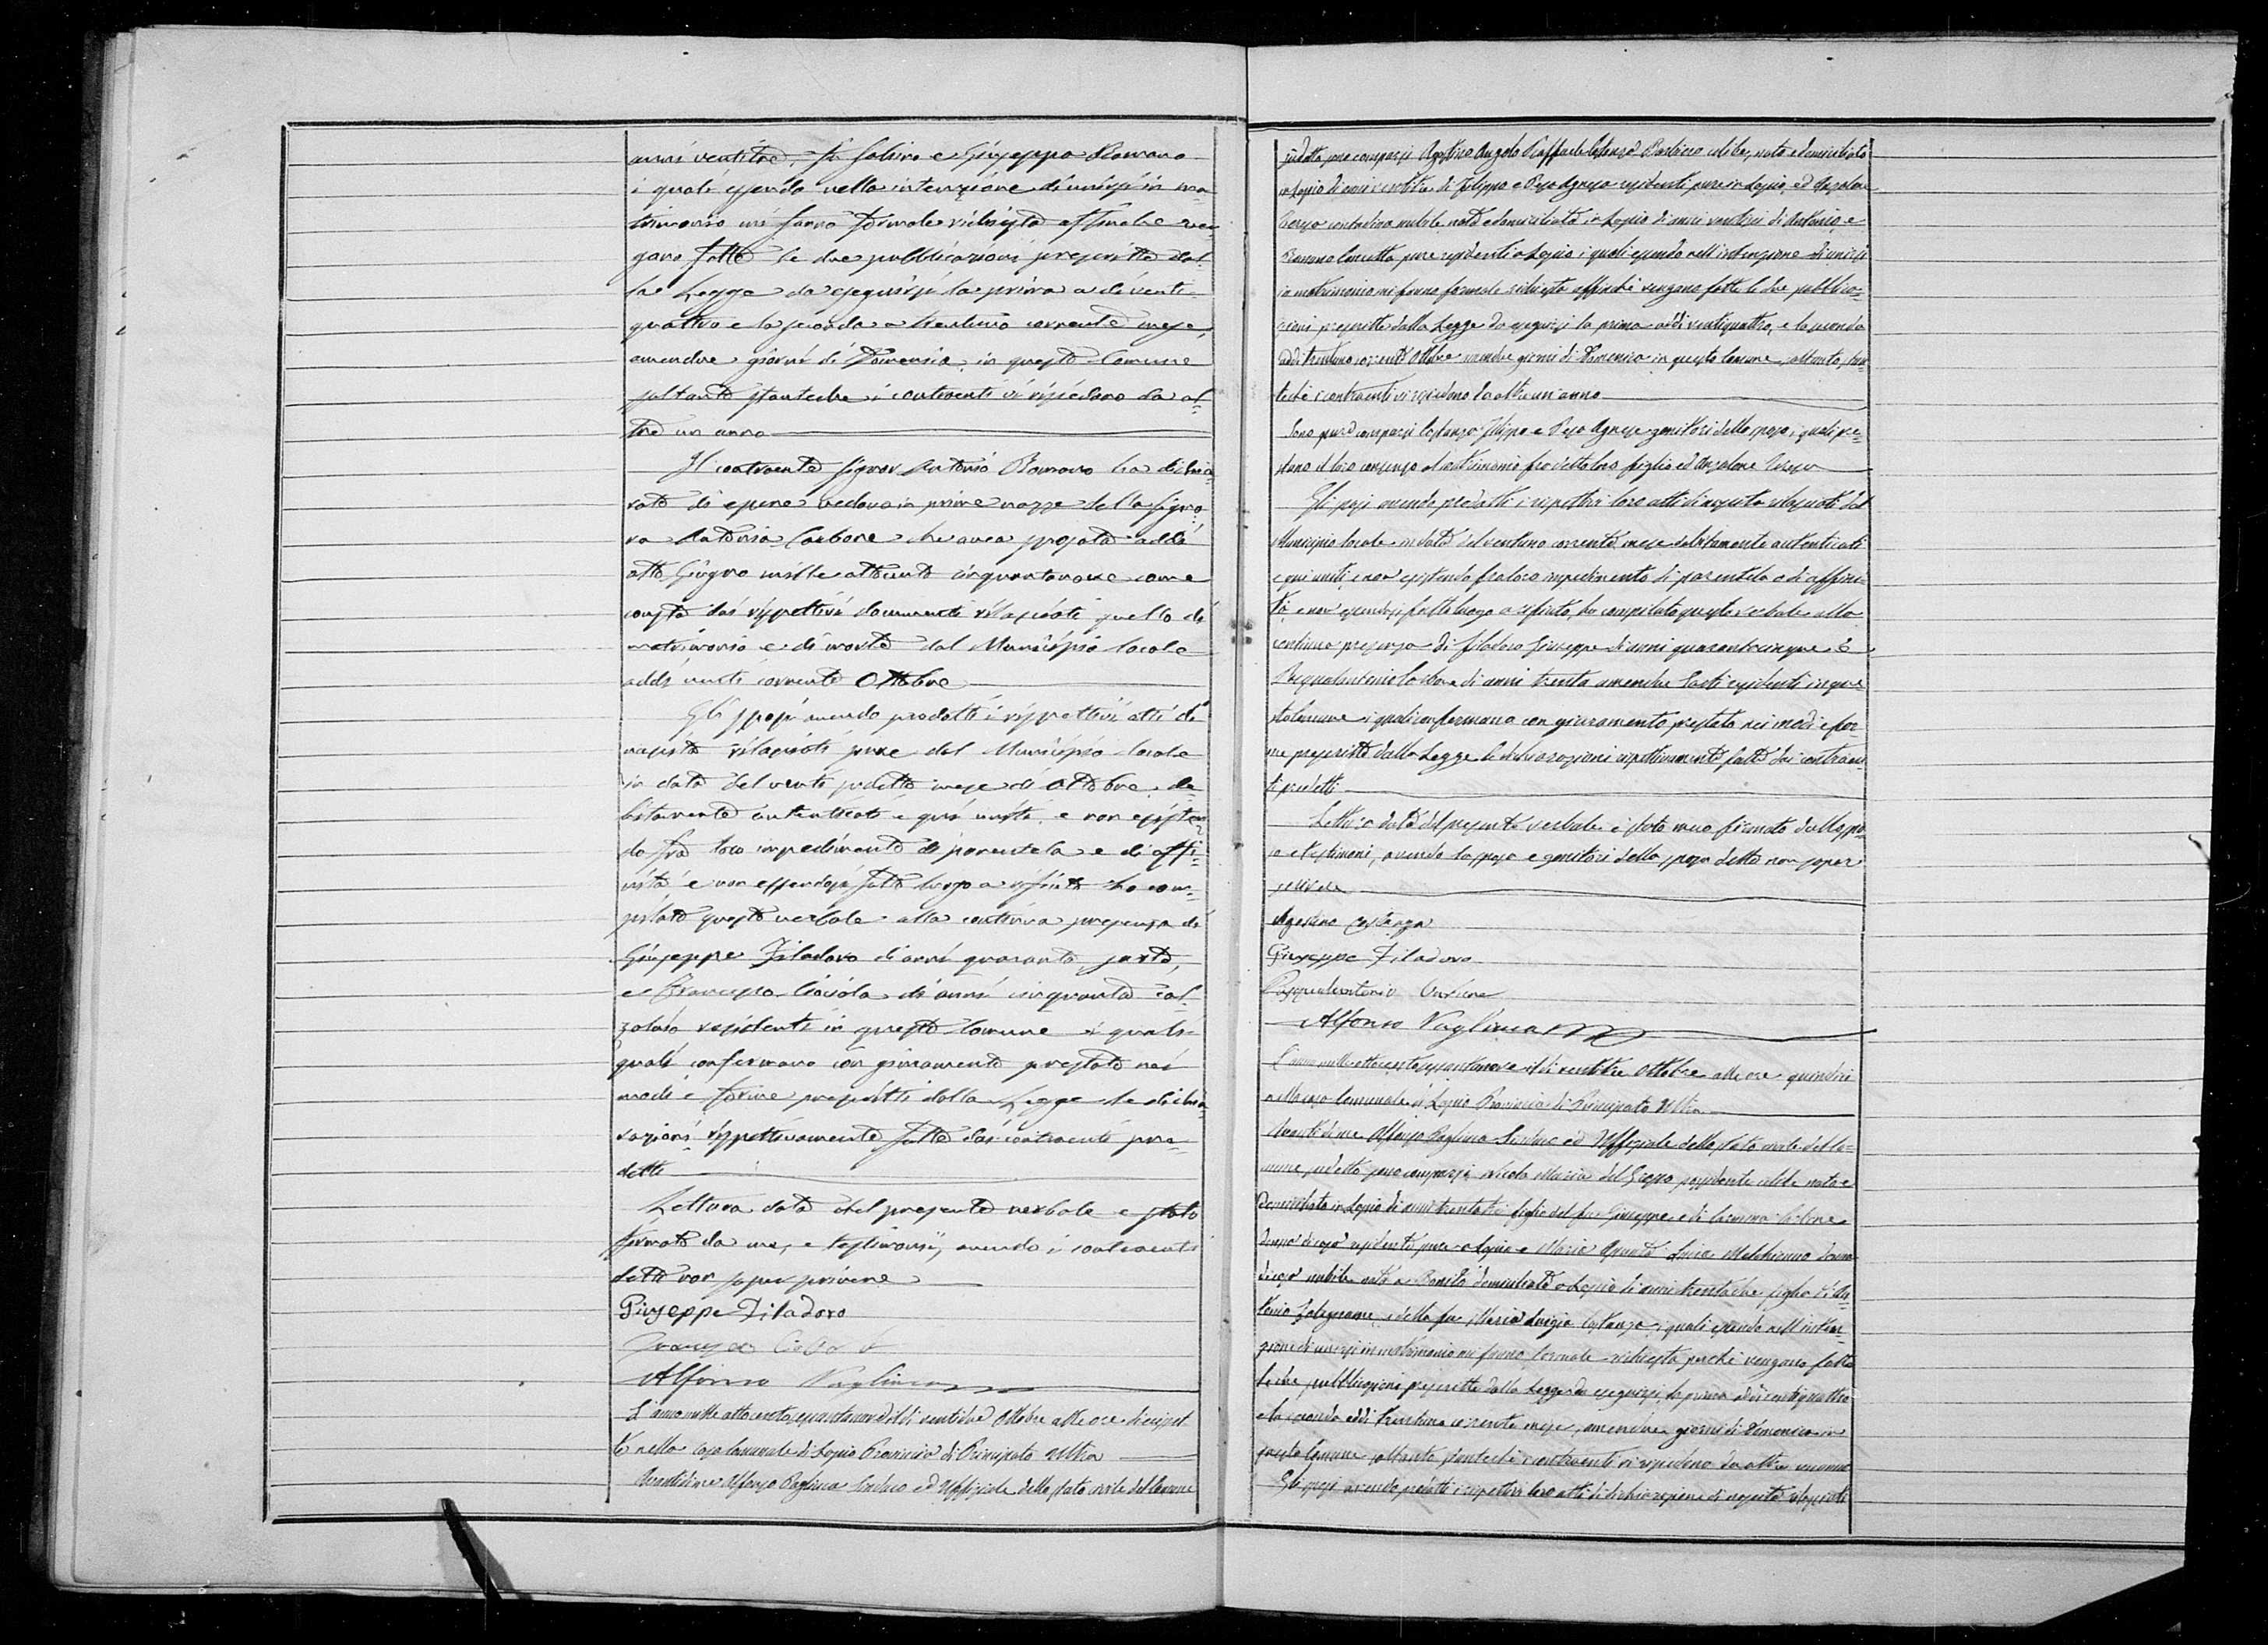 anni ventitre, fu Sabino e Giuseppa Romano
i quali essendo nella intenzione di unirsi in ma-
trimonio mi fanno formale richiesta affinche ven-
gano fatte le due pubblicazioni prescritte dal-
la Legge da eseguirsi la prima a di venti
quattro e la seconda a trentuno corrente mese,
amendue giorni di Domenica in questo Comune
soltanto stanteche i contraenti vi risiedono da ol-
tre un anno
Il contraente signor Antonio Romano ha dichia-
rato di essere vedovo in prime nozze della Signo-
ra Antonia Carbone che avea sposata addi
otto Giugno mille ottocento cinquantanove come
consta dai rispettivi documenti rilasciati quello di
matrimonio e di morte dal Municipio locale
addi venti corrente Ottobre
Gli sposi avendo prodotti i rispettivi atti di
nascita rilasciati pure dal Municipio locale
in data del venti sudetto mese di Ottobre de-
bitamente autenticati e qui uniti, e non esisten-
do fra loro impedimento di parentela e di affi-
nità e non essendosi fatto luogo a rifiuto ho com-
pilato questo verbale alla continua presenza di
Giuseppe Filadoro di anni quaranta sarto,
e Francesco Ciociola di anni cinquanta cal-
zolaio residenti in questo Comune i quali
quali confermano con giuramento prestato nei
modi e forme prescritti dalla Legge le dichia-
razioni rispettivamente fatte dai contraenti pre-
detti
Lettura data del presente verbale e stato
firmato da me, e testimonii, avendo i contraenti
detto non saper scrivere
Giuseppe Filadoro
Francesco
Alfonso Pagliuca
L'anno mille ottocento sessantanove il di ventidue Ottobre alle ore diciasset-
te nella casa Comunale di Lapio Provincia di Principato Ultra
Avanti di me Alfonso Pagliuca Sindaco ed Uffiziale dello stato civile del Comune
sudetto sono comparsi Agostino Angelo Raffaele Costanzo celibe, nato e domiciliato
in Lapio di anni ventitre di Filippo e Agnese residenti pure in Lapio, ed Anzalone
Teresa contadina nubile nata e domiciliata in Lapio di anni di Antonio, e
Romano Concetta pure residenti a Lapio i quali essendo nell'intenzione di unirsi
in matrimonio mi fanno formale richiesta affinchè vengano fatte le due pubblica-
zioni prescritte dalla Legge da eseguirsi la prima addi ventiquattro, e la seconda
addi trentuno corrente Ottobre amendue giorni di Domenica in questo Comune soltanto, stan-
techè i contraenti vi risiedono da oltre un anno
Sono pure comparsi Costanzo Filippo e Agnese genitori dello sposo, i quali pre-
stano il loro consenso al matrimonio fra detto loro figlio ed Anzalone Teresa
Gli sposi avendo prodotti i rispettivi loro atti di nascita rilasciati dal
Municipio locale in data del ventuno corrente mese debitamente autenticati
e qui uniti, e non esistendo fra loro impedimento di parentela e di affini-
tà, e non essendosi fatto luogo a rifiuto, ho compilato questo verbale alla
continua presenza di Filadoro Giuseppe di anni quarantacinque, e
Pasqualantonio Carbone di anni trenta amendue Sarti residenti in que-
sto Comune i quali confermano con giuramento prestato nei modi e for-
me prescritte dalla Legge le dichiarazioni rispettivamente fatte dai contraen-
ti predetti
Lettura data del presente verbale è stato meco firmato dallo spo-
so e testimoni, avendo la sposa e genitori dello sposo detto non saper
scrivere
Agostino Costanzo
Giuseppe Filadoro
Pasqualantonio Carbone
Alfonso Pagliuca
L'anno mille ottocento sessantanove il di ventitre Ottobre alle ore quindici
nella casa Comunale di Lapio Provincia di Principato Ultra
Avanti di me Alfonso Pagliuca Sindaco ed Uffiziale dello stato civile del Co-
mune sudetto sono comparsi Nicola Maria del Grosso possidente celibe nato e
domiciliato in Lapio di anni trentatre figlio del fu Giuseppe e di Carbone
donna di casa residente pure a Lapio e Maria Luisa donna
di casa nubile nata a Bonito domiciliata a Lapio di anni trentadue figlia di An-
tonio falegname, e della fu Maria Luigia Costanzo, i quali essendo nell'inten-
zione di unirsi in matrimonio mi fanno formale richiesta perchè vengano fatte
le due pubblicazioni prescritte dalla Legge da eseguirsi la prima addi ventiquattro
e la seconda addi trentuno corrente mese, amendue giorni di Domenica in
questo Comune soltanto, stantechè i contraenti vi risiedono da oltre un anno
Gli sposi avendo prodotti i rispettivi loro atti di dichiarazione di nascita rilasciati